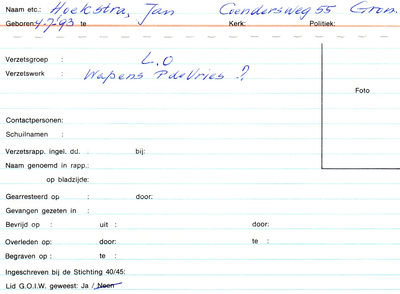 Naam etc.: Hoekstra, Jan Coendersweg 55 Gron.
Geboren: 4-7-93 te Kerk: Politiek:
Verzetsgroep : L.O
Verzetswerk : Wapens P de Vries ?
Foto
Contactpersonen:
Schuilnamen :
Verzetsrapp. ingel. dd. : bij:
Naam genoemd in rapp.:
op bladzijde:
Gearresteerd op : door:
Gevangen gezeten in :
Bevrijd op : uit : door:
Overleden op: door: te :
Begraven op : te :
Ingeschreven bij de Stichting 40/45:
Lid G.O.I.W. geweest: Ja / Neen